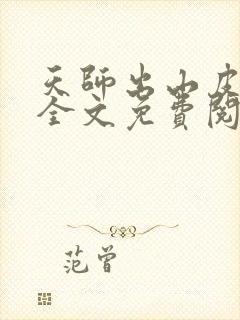 天师出山皮
全文免費閱
范曾